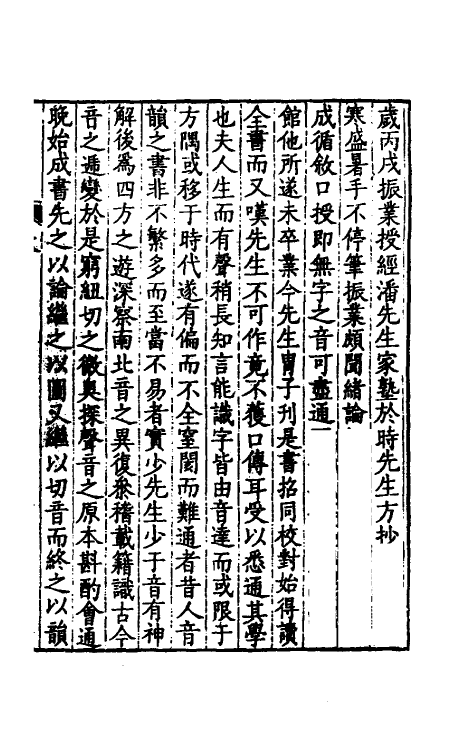 歲丙戌振業授經潘先生家塾於時先生方抄
寒盛暑手不停筆振業頗聞緒論
成循敘口授即無字之音可盡通
館他所遂未卒業今先生胄子刊是書招同校對始得讀
全書而又嘆先生不可作竟不獲口傳耳受以悉通其學
也夫人生而有聲稍長知言能識字皆由音達而或限于
方隅或移于時代遂有偏而不全窒閡而難通者昔人音
韻之書非不繁多而至當不易者實少先生少于音有神
解後爲四方之遊深察南北音之異復叅稽載籍識古今
音之遞變於是窮紐切之微奥探聲音之原本斟酌會通
晚始成書先之以論繼之以圖又繼以切音而終之以韻